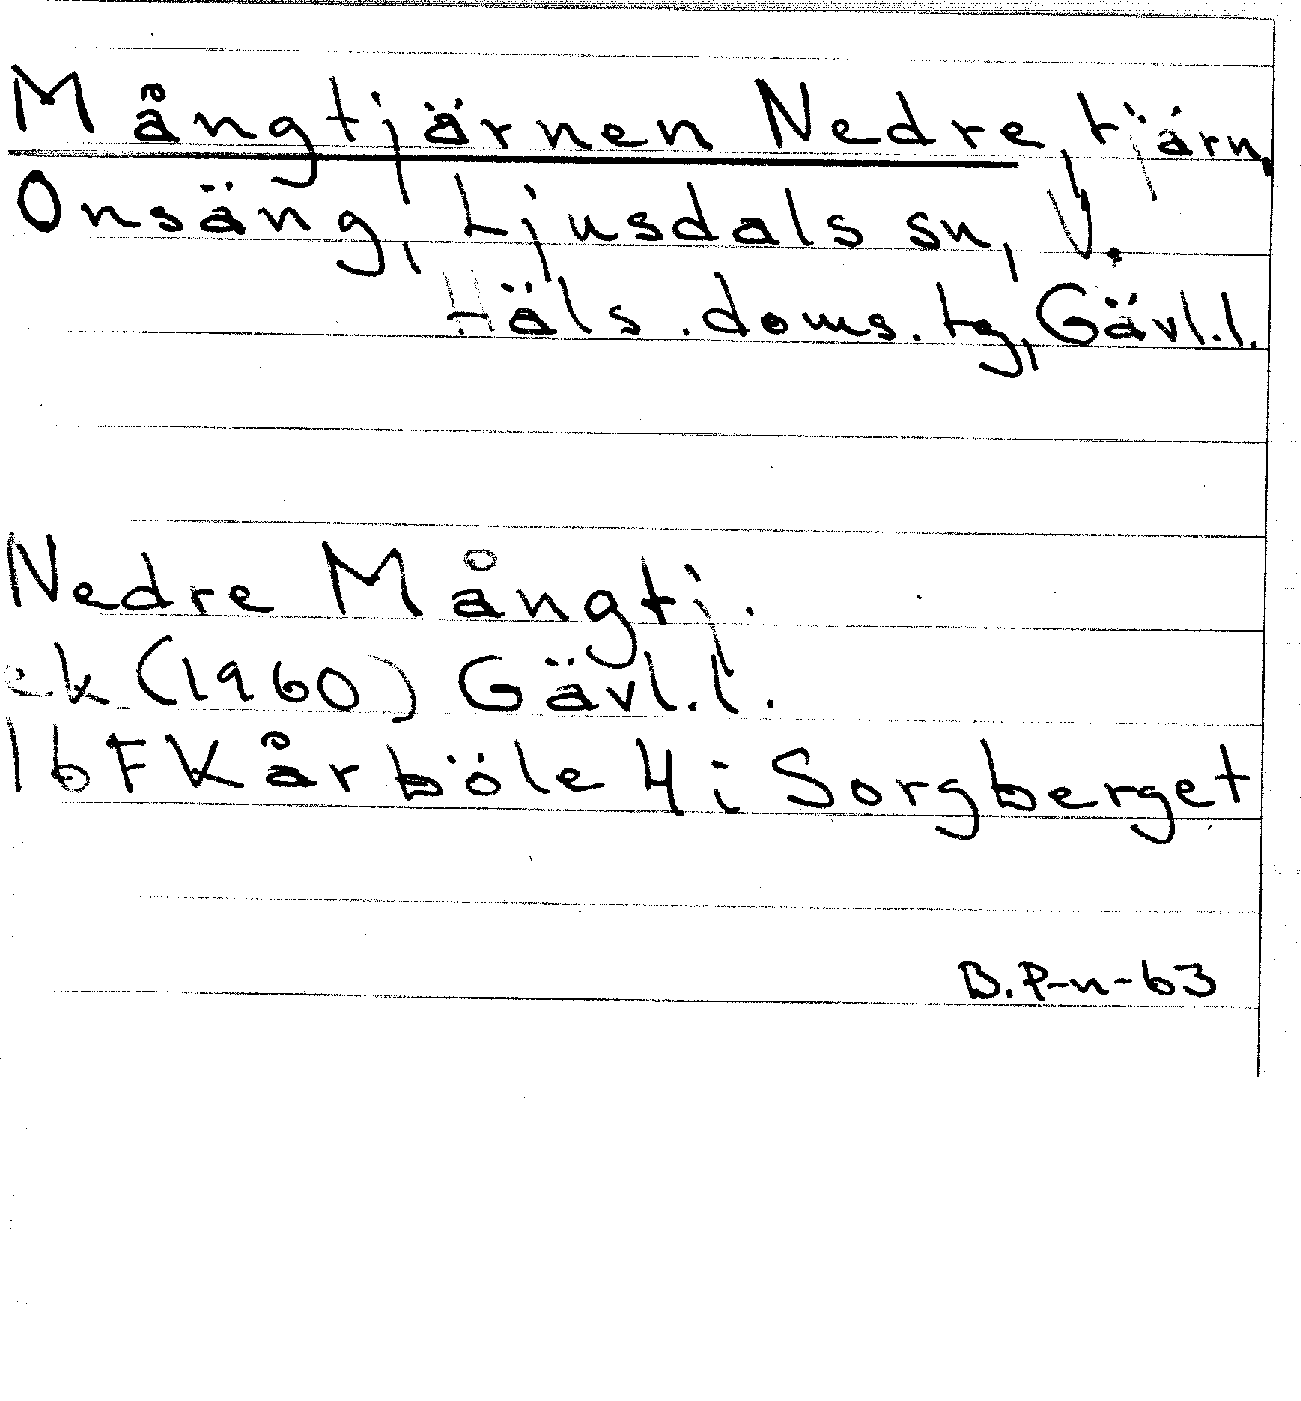 Mångtjärnen Nedre, tjärn,
Onsäng, Ljusdals sn, V.
Häls. doms. tg, Gävl.l.
Nedre Mångtj.
ek (1960) Gävl.l.
16F Kårböle 4i Sorgberget
B.P-n-63